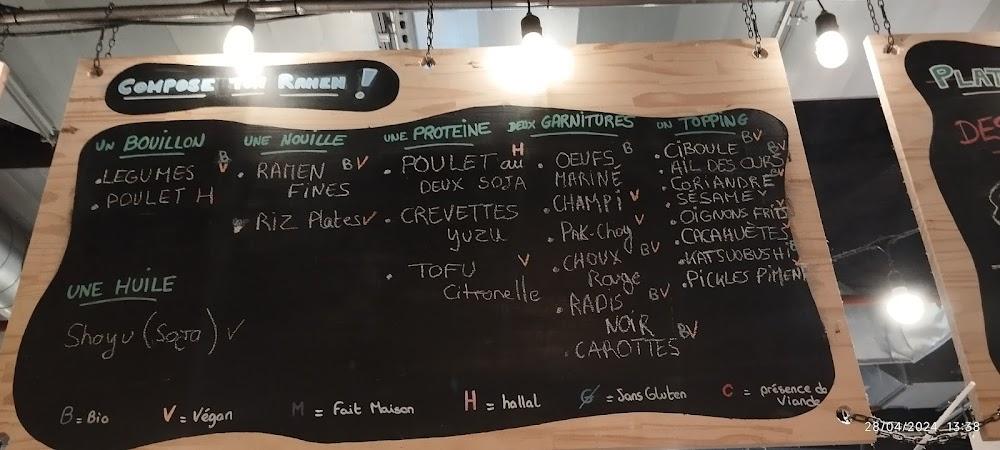 COMPOSE TON RAMEN !
UN BOUILLON
.LEGUMES B V
.POULET H
UNE HUILE
Shoyu (Soja) V
UNE NOUILLE
.RAMEN BV
FINES
RIZ Plates V
UNE PROTEINE
.POULET au H
DEUX SOJA
.CREVETTES
YUZU
.TOFU V
Citronelle
DEUX GARNITURES
.OEUFS B
MARINÉ
.CHAMPI V
.PAK-Choy V
.CHOUX BV
Rouge
.RADIS BV
NOIR
.CAROTTES BV
UN TOPPING
.CIBOULE BV
.AIL DES OURS BV
.CORIANDRE
.SÉSAME V
.OIGNONS FRITS
.CACAHUÈTES
.KATSUOBUSHI
.PICKLES PIMENT
B = Bio
V = Végan
M = Fait Maison
H = hallal
G = Sans Gluten
C = présence de
Viande
PLAT
DES
28/04/2024 13:38